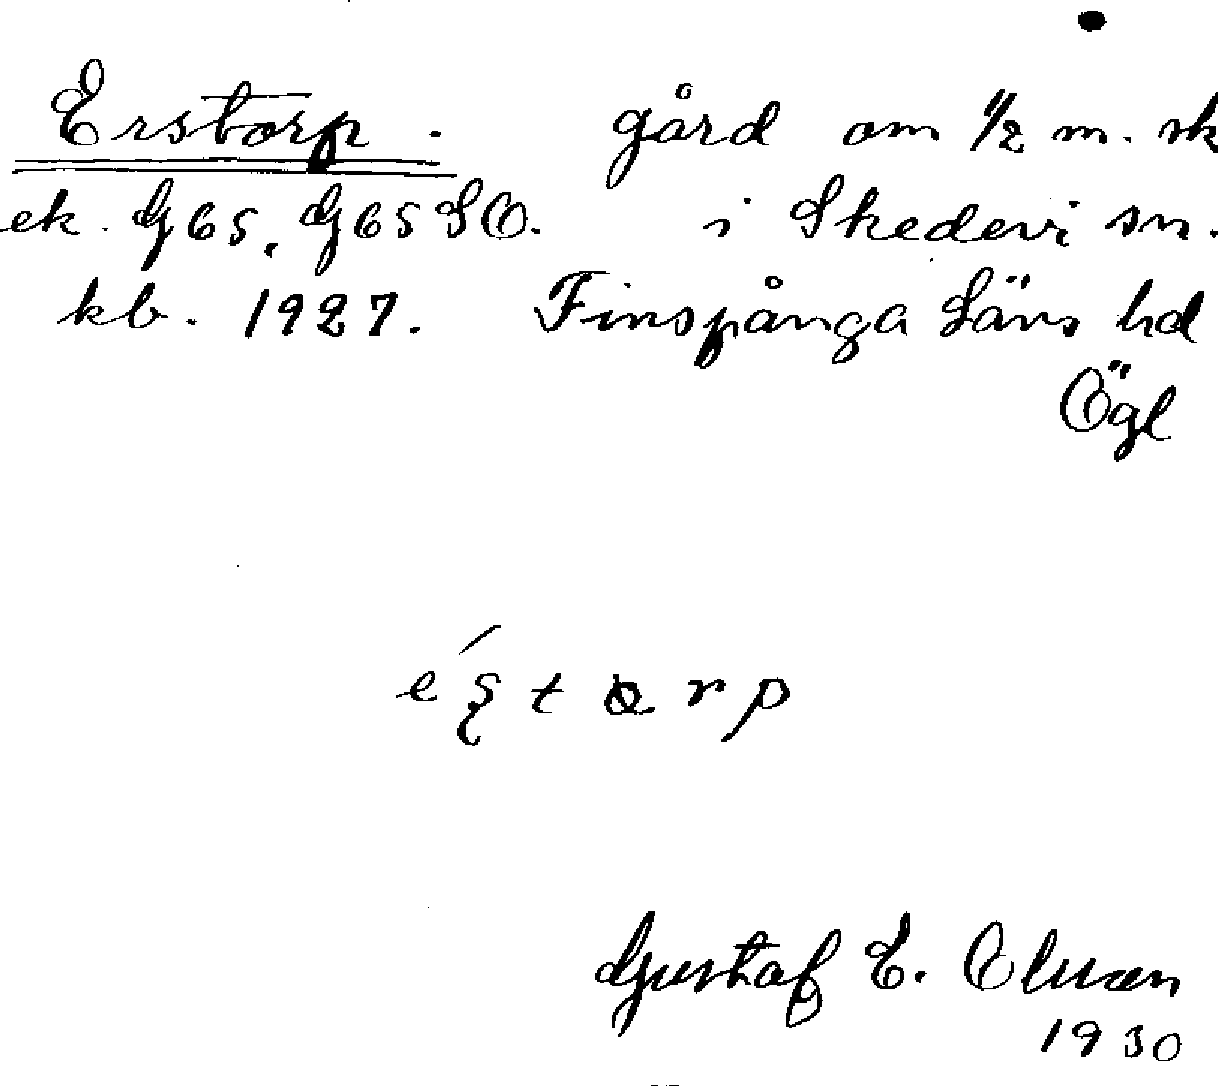 Erstorp. gård om 1/2 m. sk
ek. G65, G65SO. i Skedevi sn.
kb. 1927. Finspånga Läns hd
Ögl
Gustaf E.
1930